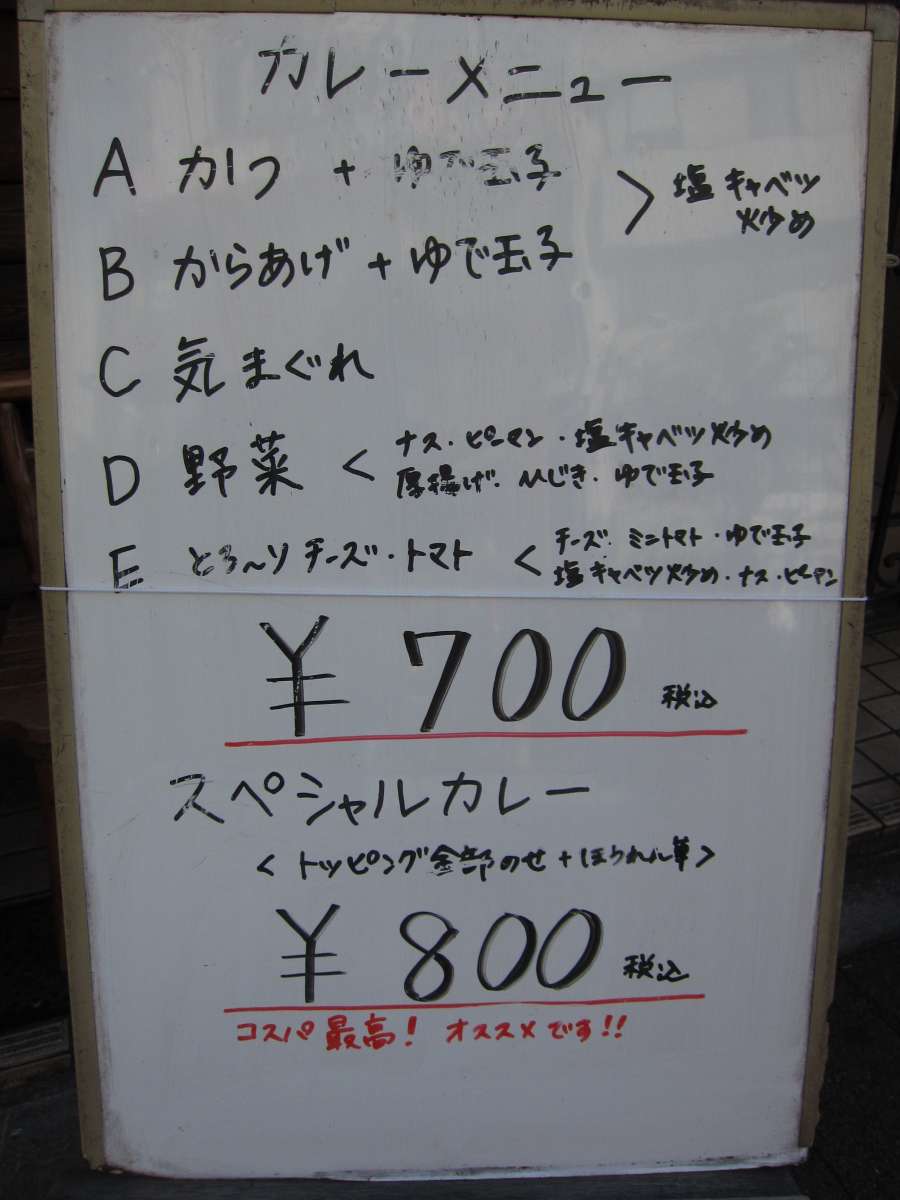 カレーメニュー
A かつ + ゆで玉子
B からあげ + ゆで玉子
> 塩キャベツ
炒め
C 気まぐれ
D 野菜 < ナス・ピーマン・塩キャベツ炒め
厚揚げ・ひじき・ゆで玉子
E とろ〜りチーズ・トマト < チーズ・ミニトマト・ゆで玉子
塩キャベツ炒め・ナス・ピーマン
¥700 税込
スペシャルカレー
<トッピング全部のせ+ほうれん草>
¥800 税込
コスパ最高! オススメです!!